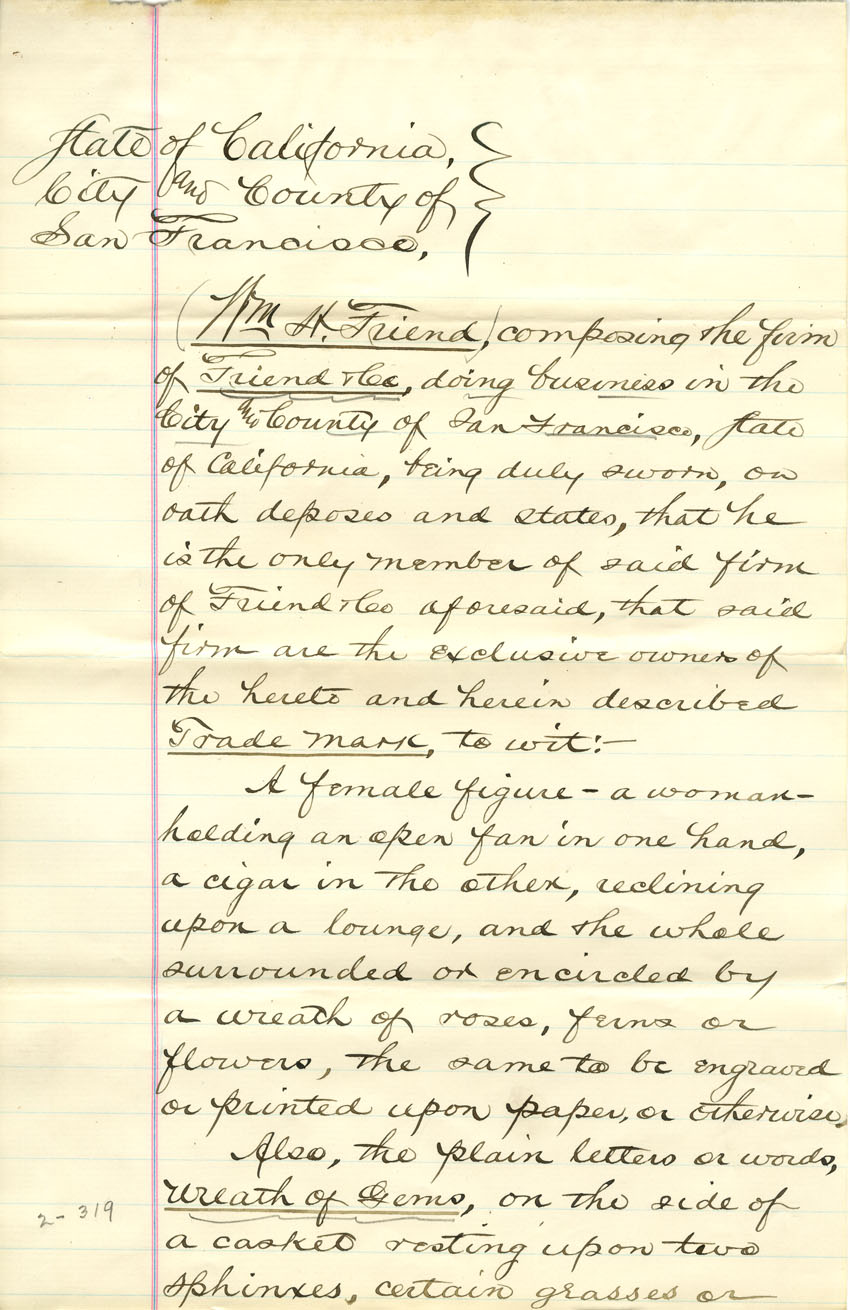 State of California,
City and County of
San Francisco,
(Wm H. Friend) composing the firm
of Friend & Co, doing business in the
City and County of San Francisco, State
of California, being duly sworn, on
oath deposes and states, that he
is the only member of said firm
of Friend & Co aforesaid, that said
firm are the exclusive owners of
the hereto and herein described
Trade Mark, to wit:—
A female figure – a woman –
holding an open fan in one hand,
a cigar in the other, reclining
upon a lounge, and the whole
surrounded or encircled by
a wreath of roses, ferns or
flowers, the same to be engraved
or printed upon paper, or otherwise,
Also, the plain letters or words,
Wreath of Gems, on the side of
a casket resting upon two
sphinxes, certain grasses or
2-319